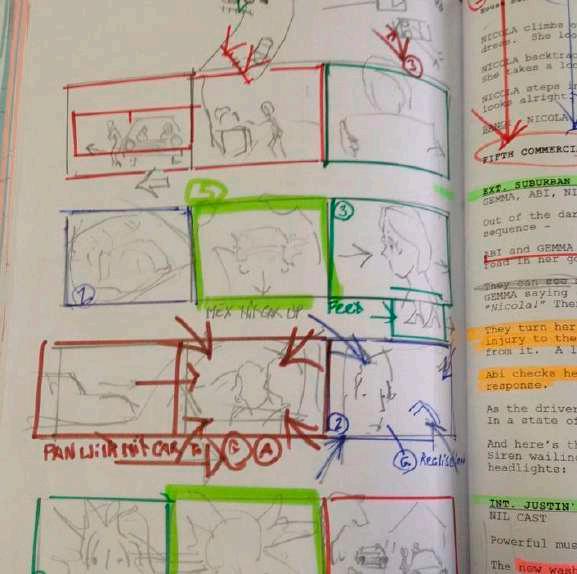 NICOLA climbs o
dress. She loo
NICOLA backtrac
She takes a loo
NICOLA steps in
looks alright
NICOLA
FIFTH COMMERCI
EXT. SUBURBAN
GEMMA, ABI, NI
Out of the da
sequence -
ABI and GEMMA
road in her go
They can see
GEMMA saying
"Nicola!" The
They turn her
injury to the
from it. A l
Abi checks he
response.
As the driver
In a state of
And here's th
Siren wailing
headlights:
INT. JUSTIN'
NIL CAST
Powerful mus
The new wash
3
5
3
1
HIT CAR UP
FEET
2
PAN WITH HIT CAR
G A
G